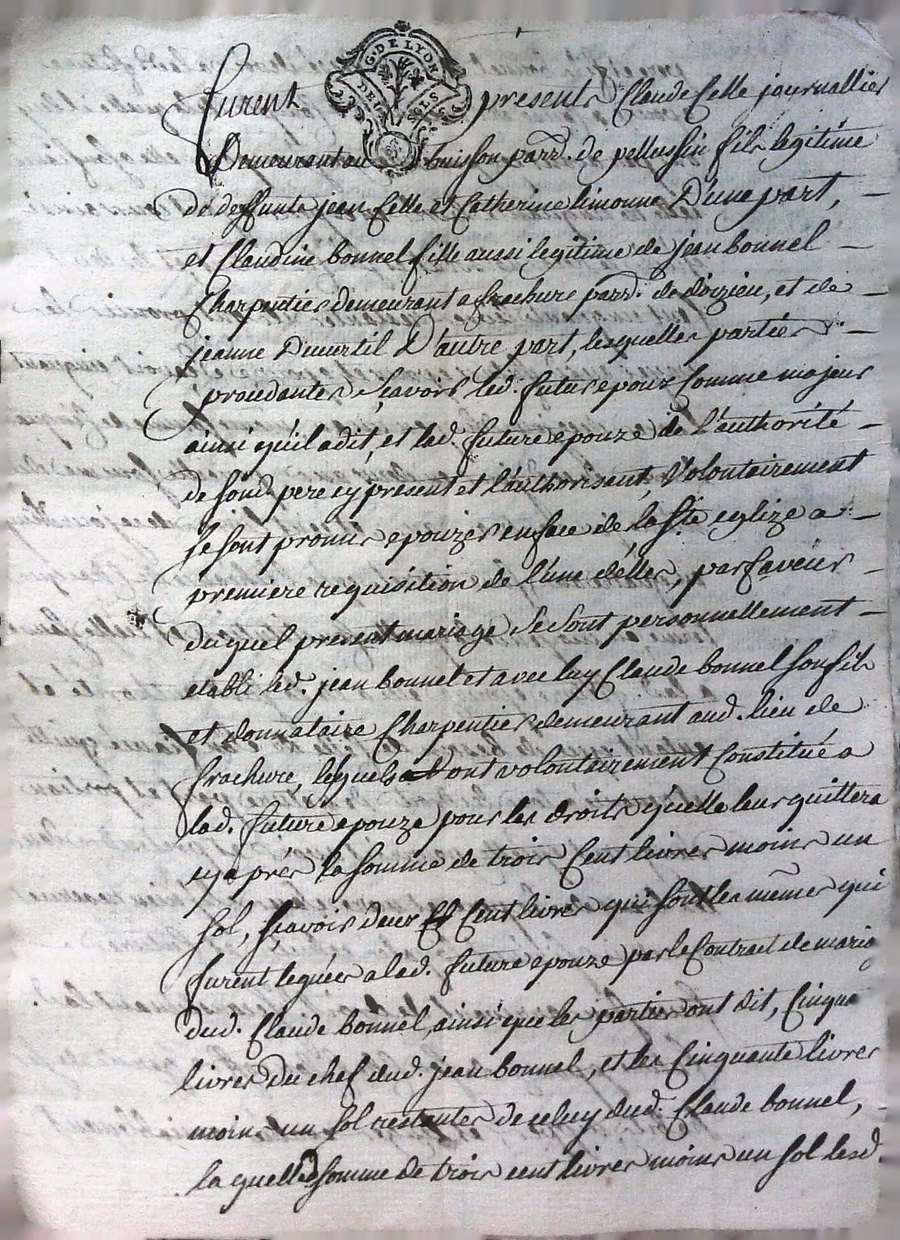 G. DE LYON
DEUX SOLS
furent presents Claude Celle journallier
Demeurant au buisson parr. de pellussin fils legitime
de deffunts jean Celle et Catherine limonne D'une part,
et Claudine bonnel fille aussi legitime de jean bonnel
Charpentier demeurant a frachure parr. de doizieu, et de
jeanne D'autre part, lesquelles parties
procedantes sçavoir led. futur epoux Comme majeur
ainsi qu'il a dit, et lad. future epouze de l'authorité
de sond. pere cy present et l'authorisant, Volontairement
se sont promis epouzer en face de la Ste eglize a
premiere requisition de l'une d'elles, par faveur
du quel present mariage se sont personnellement
etabli led. jean bonnel et avec luy Claude bonnel son fils
et donnataire Charpentier demeurant aud. lieu de
frachure, lesquels ont volontairement Constitué a
lad. future epouze pour les droits quelle leur quittera
cy aprés la somme de trois Cent livres moins un
sol, sçavoir deux Cent livres qui sont les mêmes qui
furent leguées a lad. future epouze par le Contrait de mariag
dud. Claude bonnel, ainsi que les parties ont dit, Cinqua
livres du chef dud. jean bonnel, et les Cinquante livres
moins un sol restantes de celuy dud. Claude bonnel,
la quelle somme de trois cent livres moins un sol lesd.